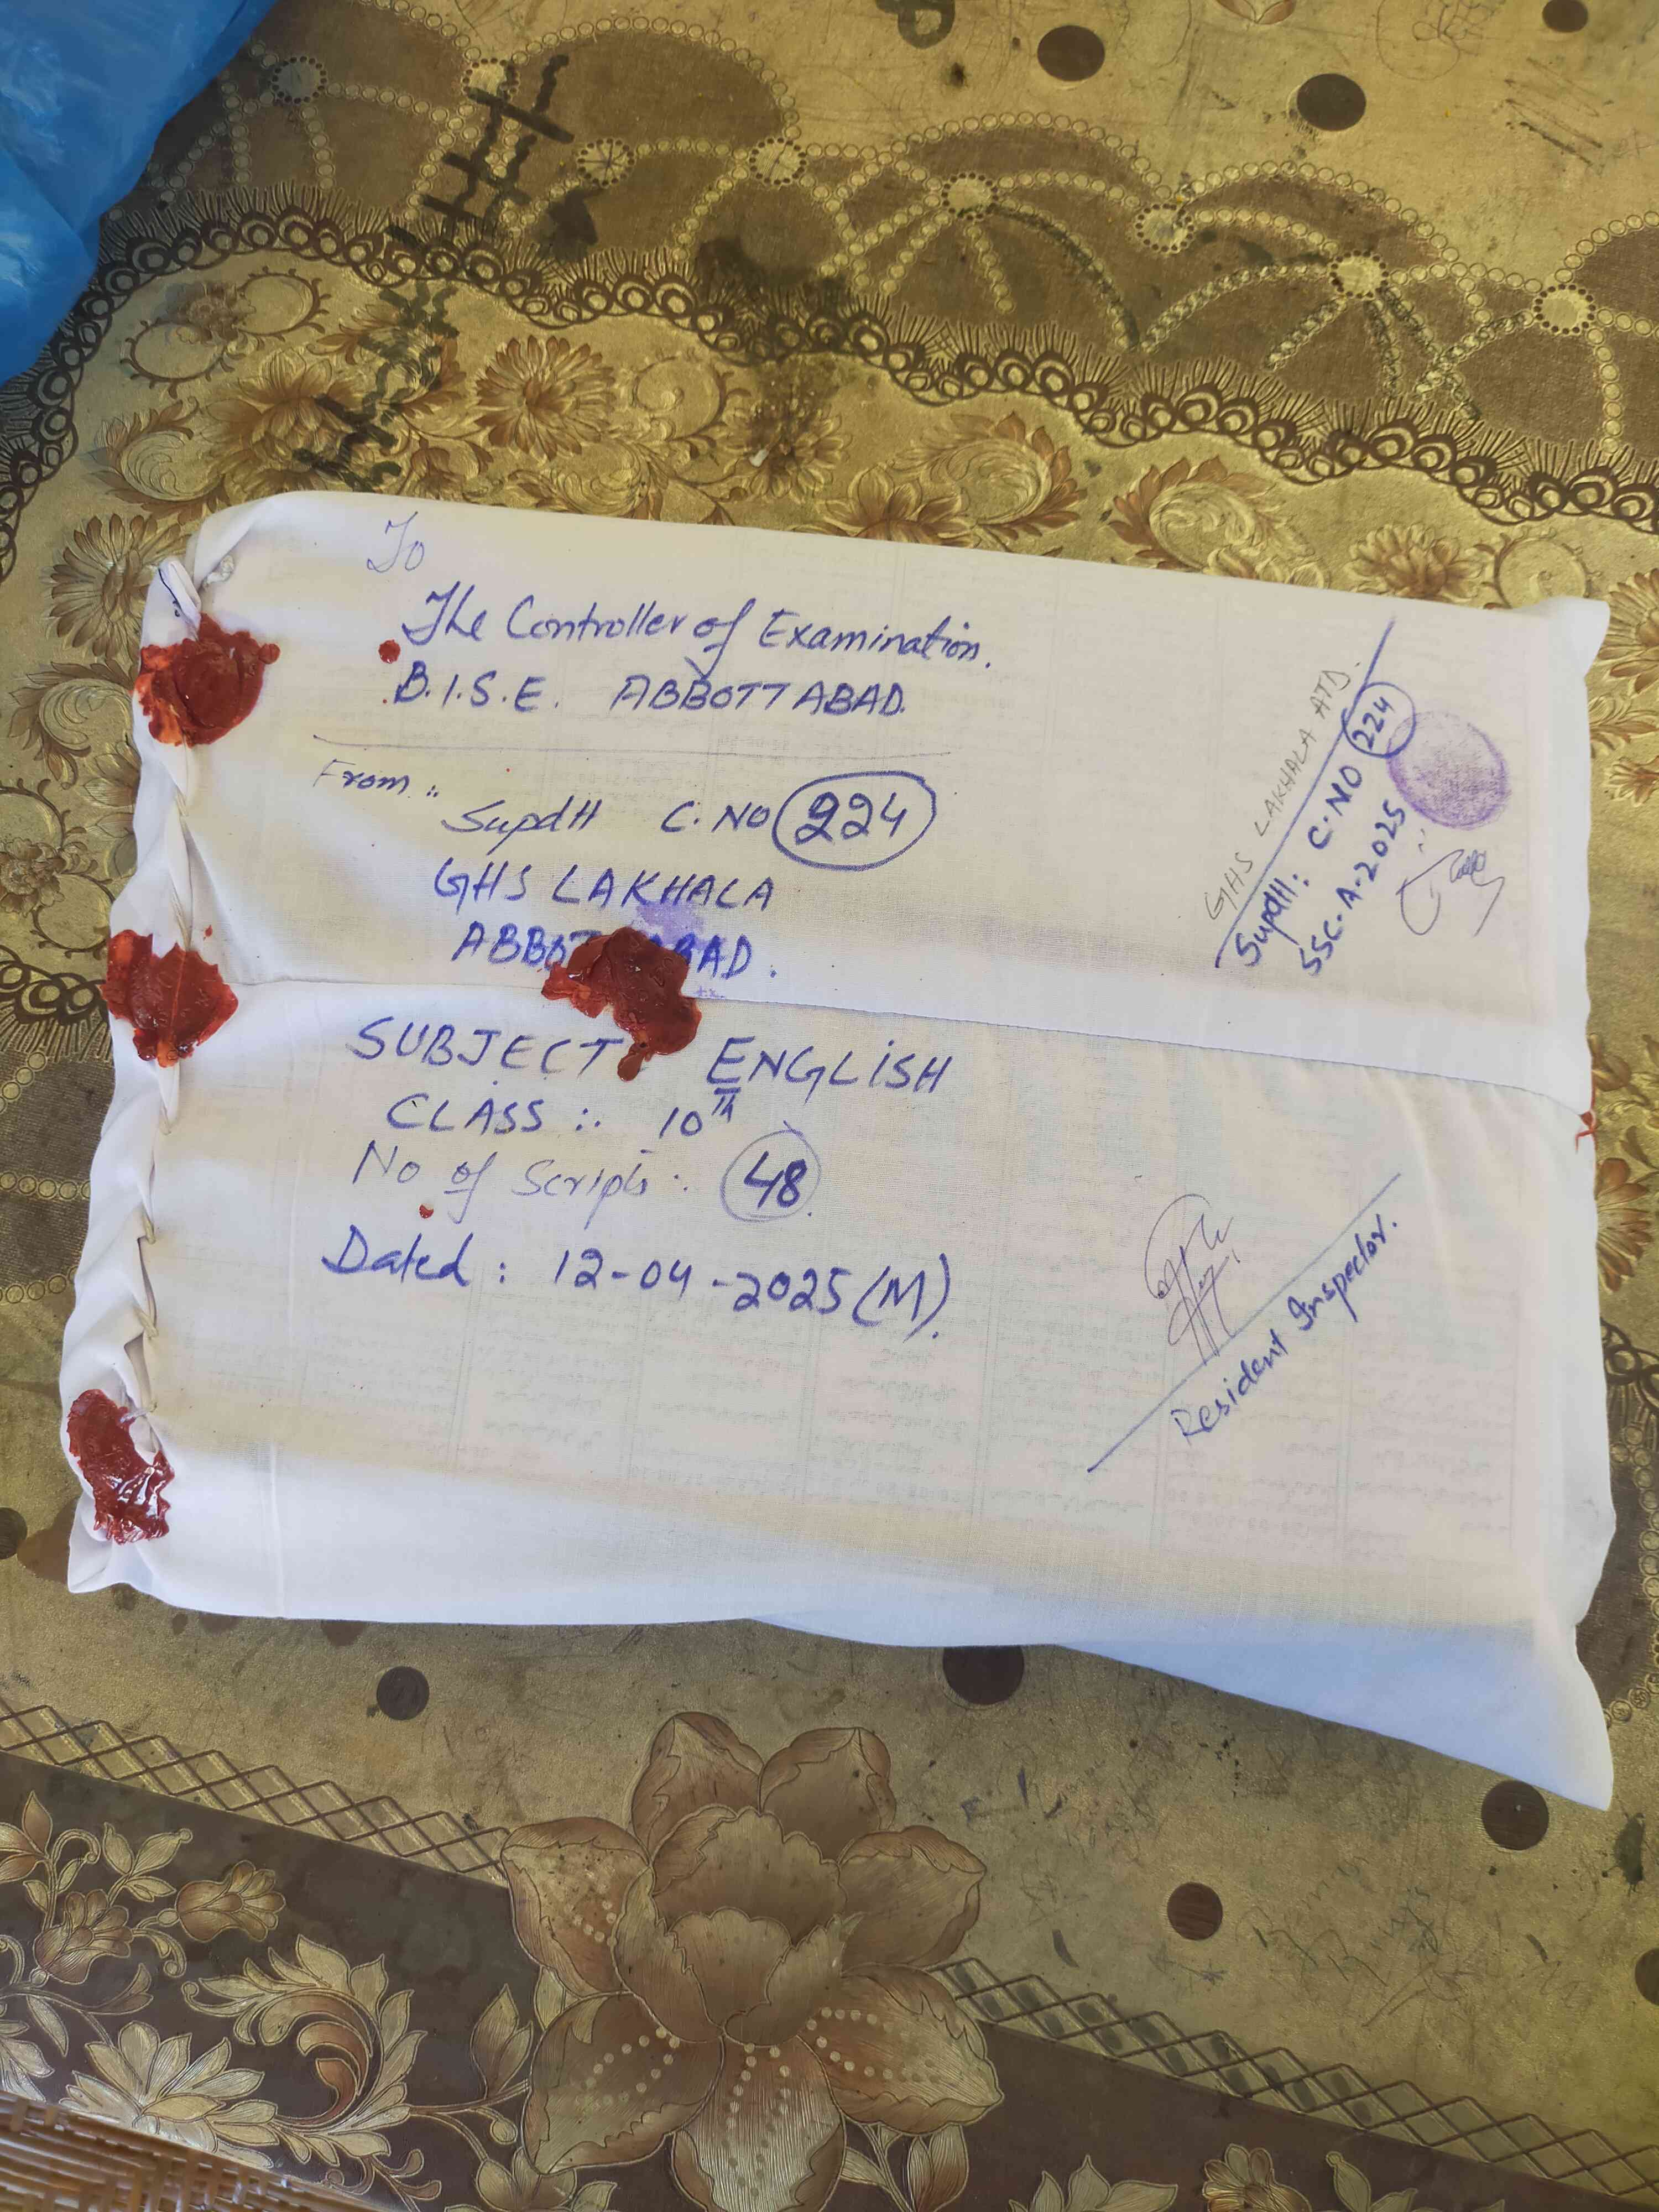 To
The Controller of Examination.
B.I.S.E. ABBOTTABAD.
From ::
Supdtt C. NO 224
GHS LAKHALA
ABBOTTABAD.
SUBJECT : ENGLISH
CLASS :: 10th
No of Scripts :. 48
Dated : 12-04-2025 (M).
GHS LAKHALA ATD.
Supdtt: C.NO 224
SSC-A-2025
Resident Inspector.